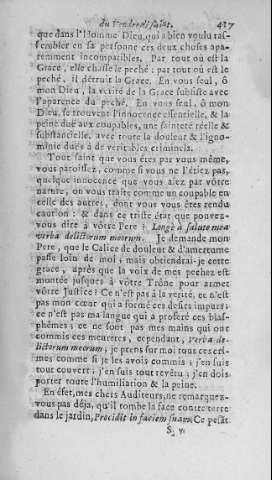 du Vendredi saint. 417
que dans l'Homme Dieu, qui a bien voulu ras-
sembler en sa personne ces deux choses apa-
remment incompatibles. Par tout où est la
Grace, elle chasse le peché; par tout où est le
peché, il détruit la Grace. En vous seul, ô
mon Dieu, la verité de la Grace subsiste avec
l'aparence du peché. En vous seul, ô mon
Dieu, se trouvent l'innocence essentielle, & la
peine duë aux coupables, une sainteté réelle &
substancielle, avec toute la douleur & l'igno-
minie dués à de veritables criminels.
Tout saint que vous êtes par vous même,
vous paroissez, comme si vous ne l'étiez pas,
quelque innocence que vous aïez par vôtre
nature, on vous traite comme un coupable en
celle des autres, dont vous vous êtes rendu
caution: & dans ce triste état que pouvez-
vous dire à vôtre Pere? Longè à salute mea
verba delictorum meorum. Je demande mon
Pere, que le Calice de douleur & d'amertume
passe loin de moi; mais obtiendrai-je cette
grace, après que la voix de mes pechez est
montée jusques à vôtre Trône pour armer
vôtre Justice! Ce n'est pas à la verité, et n'est
pas mon cœur qui a formé ces desirs impurs;
ce n'est pas ma langue qui a proferé ces blas-
phêmes; et ce ne sont pas mes mains qui ont
commis ces meurtres, cependant, Verba de-
lictorum meorum; je prens sur moi tous ces cri-
mes comme si je les avois commis; j'en suis
tout couvert; j'en suis tout revêtu; j'en dois
porter toute l'humiliation & la peine.
En éfet, mes chers Auditeurs, ne remarquez-
vous pas déja, qu'il tombe la face contre terre
dans le jardin, Procidit in faciem suam, Ce pesāt
S v